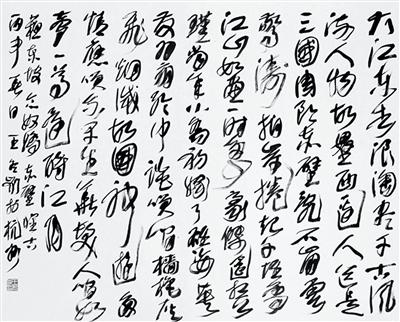 大江东去浪淘尽千古风
流人物故垒西邊人道是
三國周郎赤壁乱石崩雲
驚涛拍岸捲起千堆雪
江山如画一时多少豪傑遥想公
瑾当年小乔初嫁了雄姿英
发羽扇纶巾谈笑间樯橹灰
飞烟滅故國神遊多
情應笑我早生華髮人间如
夢一尊還酹江月
蘇東坡念奴嬌赤壁懷古
春日王於杭州